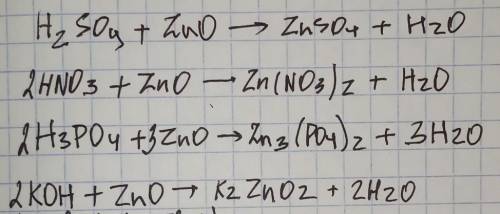 H2SO4 + ZnO → ZnSO4 + H2O
2HNO3 + ZnO → Zn(NO3)2 + H2O
2H3PO4 + 3ZnO → Zn3(PO4)2 + 3H2O
2KOH + ZnO → K2ZnO2 + 2H2O